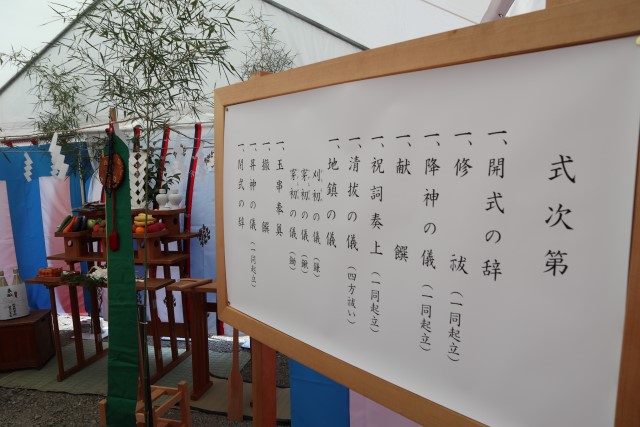 式次第
一、開式の辞
一、修祓（一同起立）
一、降神の儀（一同起立）
一、献饌
一、祝詞奏上（一同起立）
一、清祓の儀（四方祓い）
一、地鎮の儀
刈初の儀（鎌）
穿初の儀（鍬）
穿初の儀（鋤）
一、玉串奉奠
一、撤饌
一、昇神の儀（一同起立）
一、閉式の辞